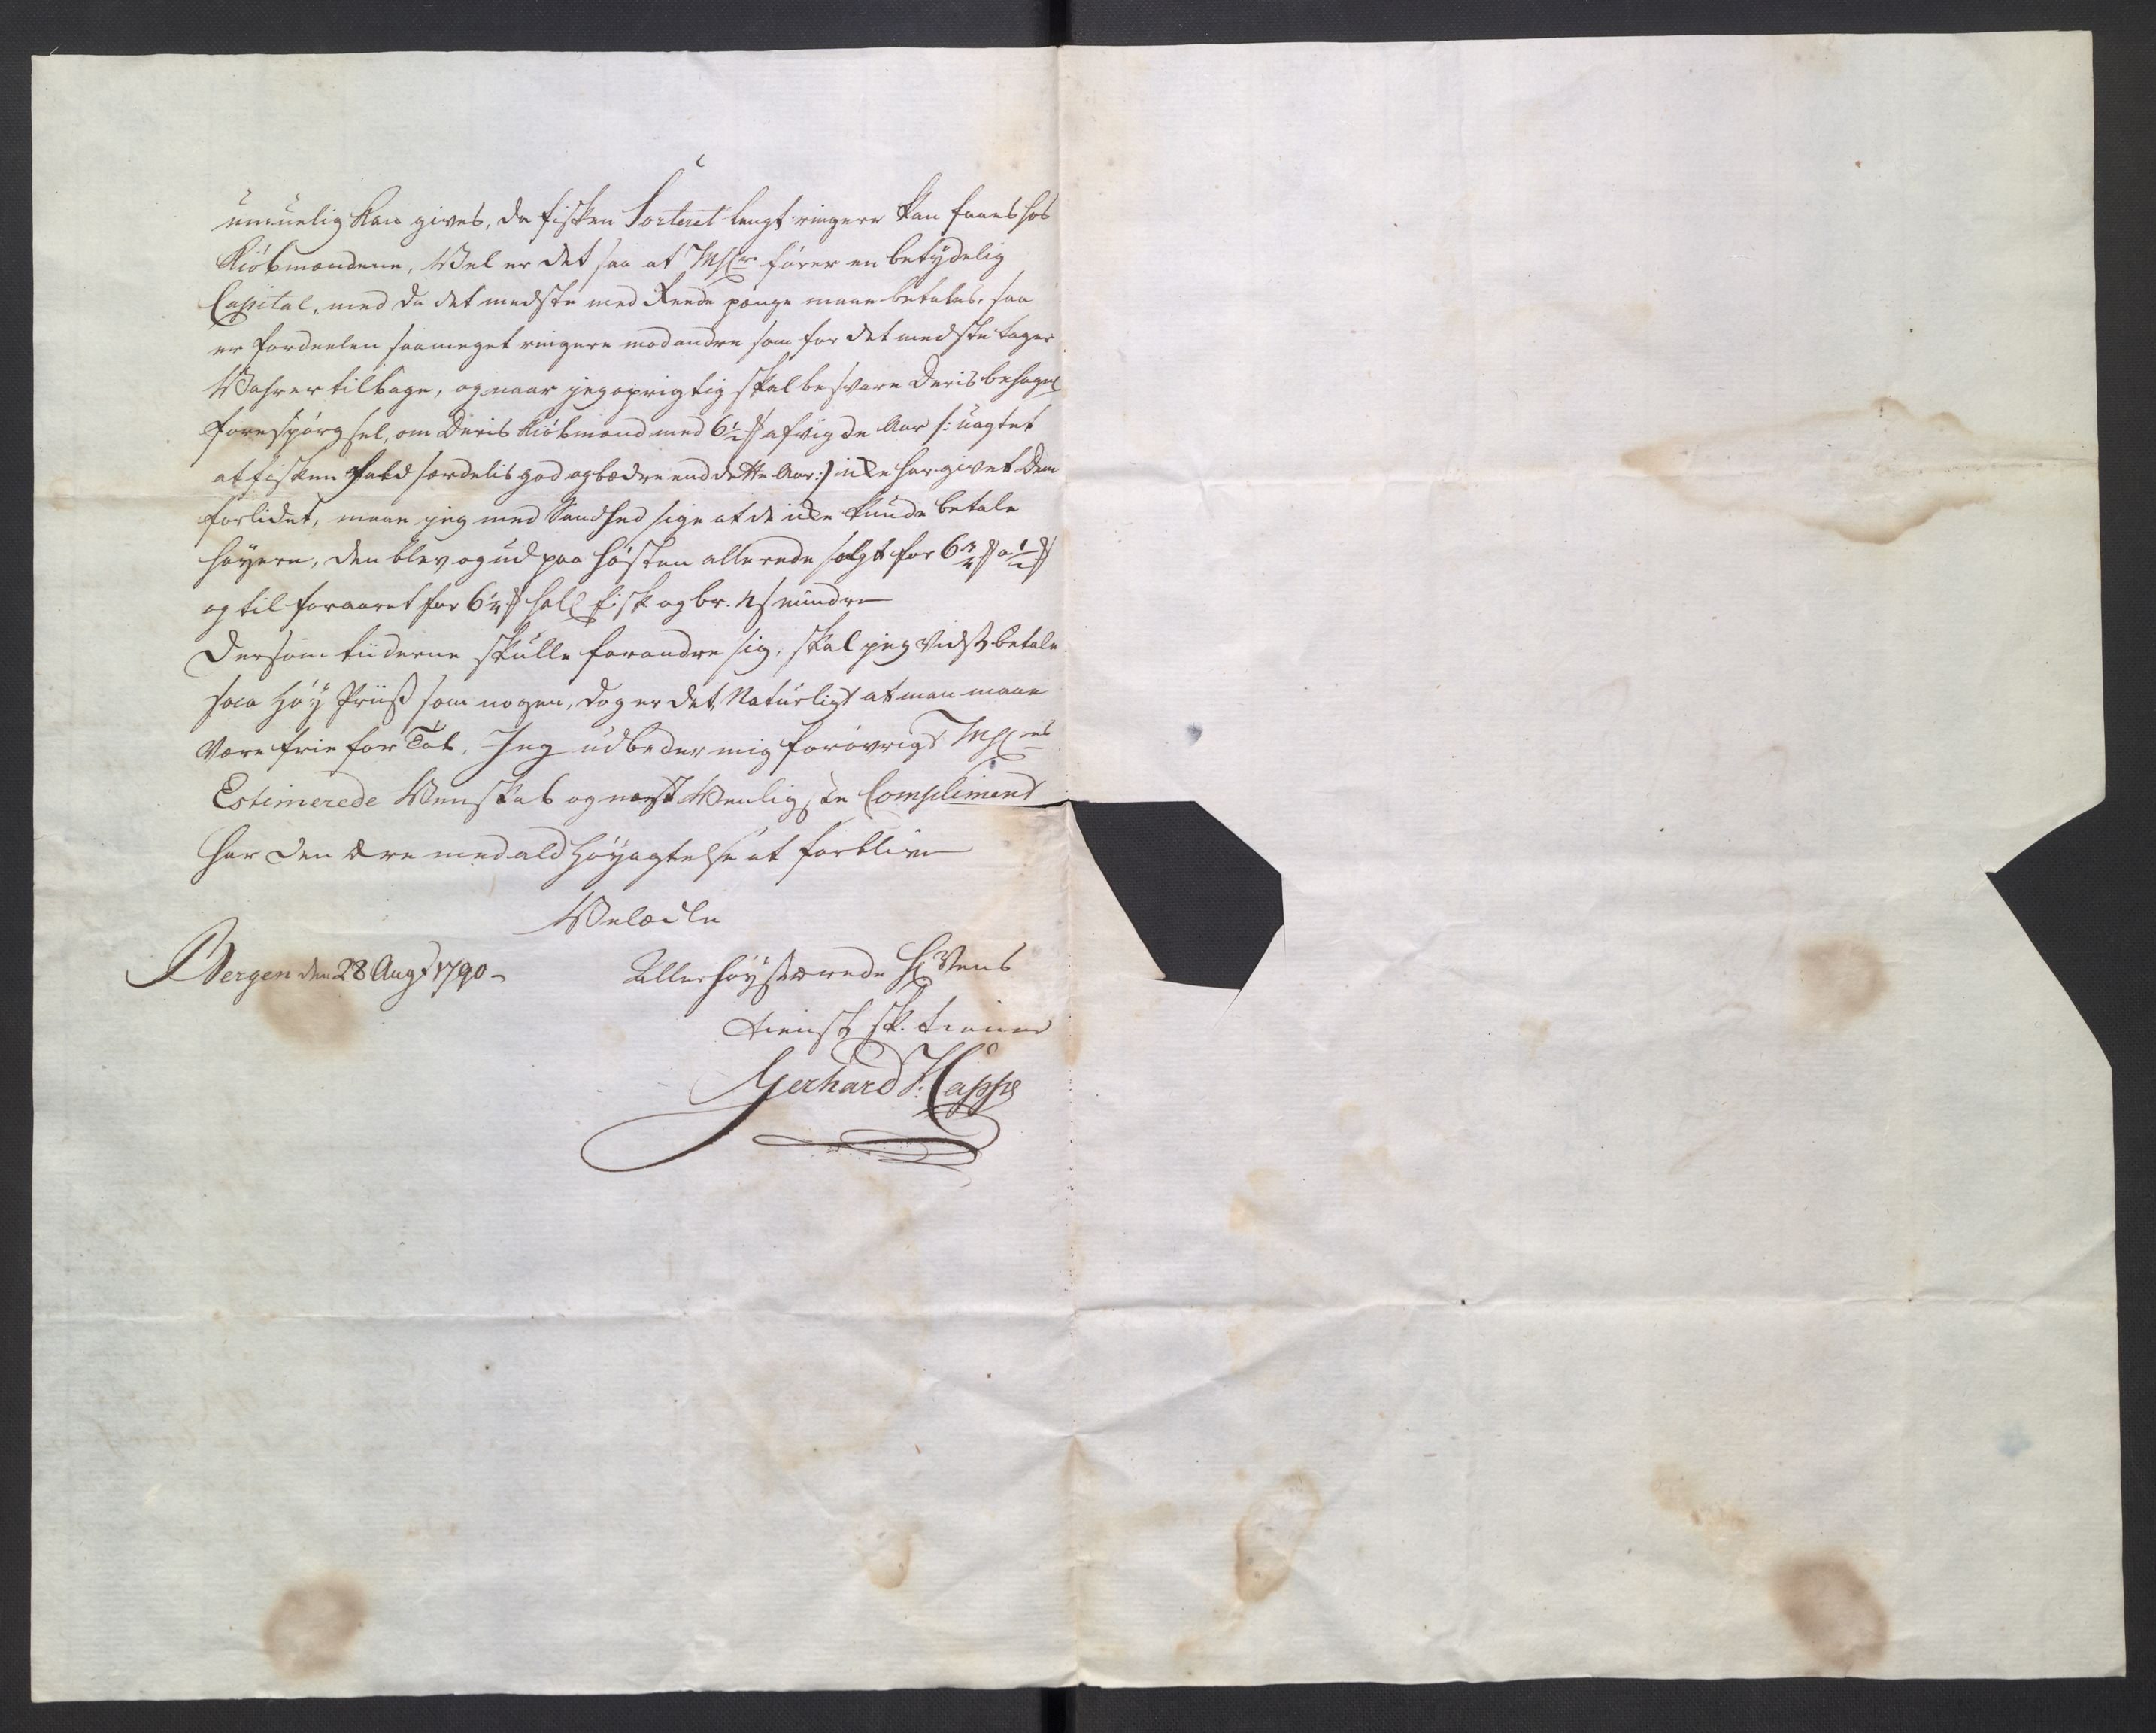 umuelig kan gives, da fisken Sorteret langt ringere kan faaes hos
Kiøbmændene, Vel er det saa at Msr fører en betydelig
Capital, med da det medste med Reede penge maae betales, saa
er fordeelen saameget ringere mod andre som for det meedste tager
Vahrer tilbage, og naar jeg oprigtig skal besvare Deris behagel
forespørgsel, om Deris Kiøbmand med 6½ afvigde Aar /: uagtet
at fisken fald særdelis god og bædre end dette Aar :/ icke har givet Dem
forlidet, maae jeg med Sandhed sige at de icke kunde betale
høyere, den blev og ud paa høsten allerede solgt for 6¾ a ½
og til foraaret for 6¼ holl fisk og br. N mindre
Dersom tiiderne skulle forandre sig, skal jeg vidst betale
saa høy Priiß som nogen, dog er det Naturligt at man maae
være frie for Tab. Jeg udbeder mig forøvrigt Msrs
Estimerede Venskab og næst Venligste Compliment
har den Ære med ald høyagtelse at forblive
Velædle
Bergen den 28 Augt 1790 - Allerhøystærede Hr Vens
tienstsk. tiener
Gerhard F: Cappe